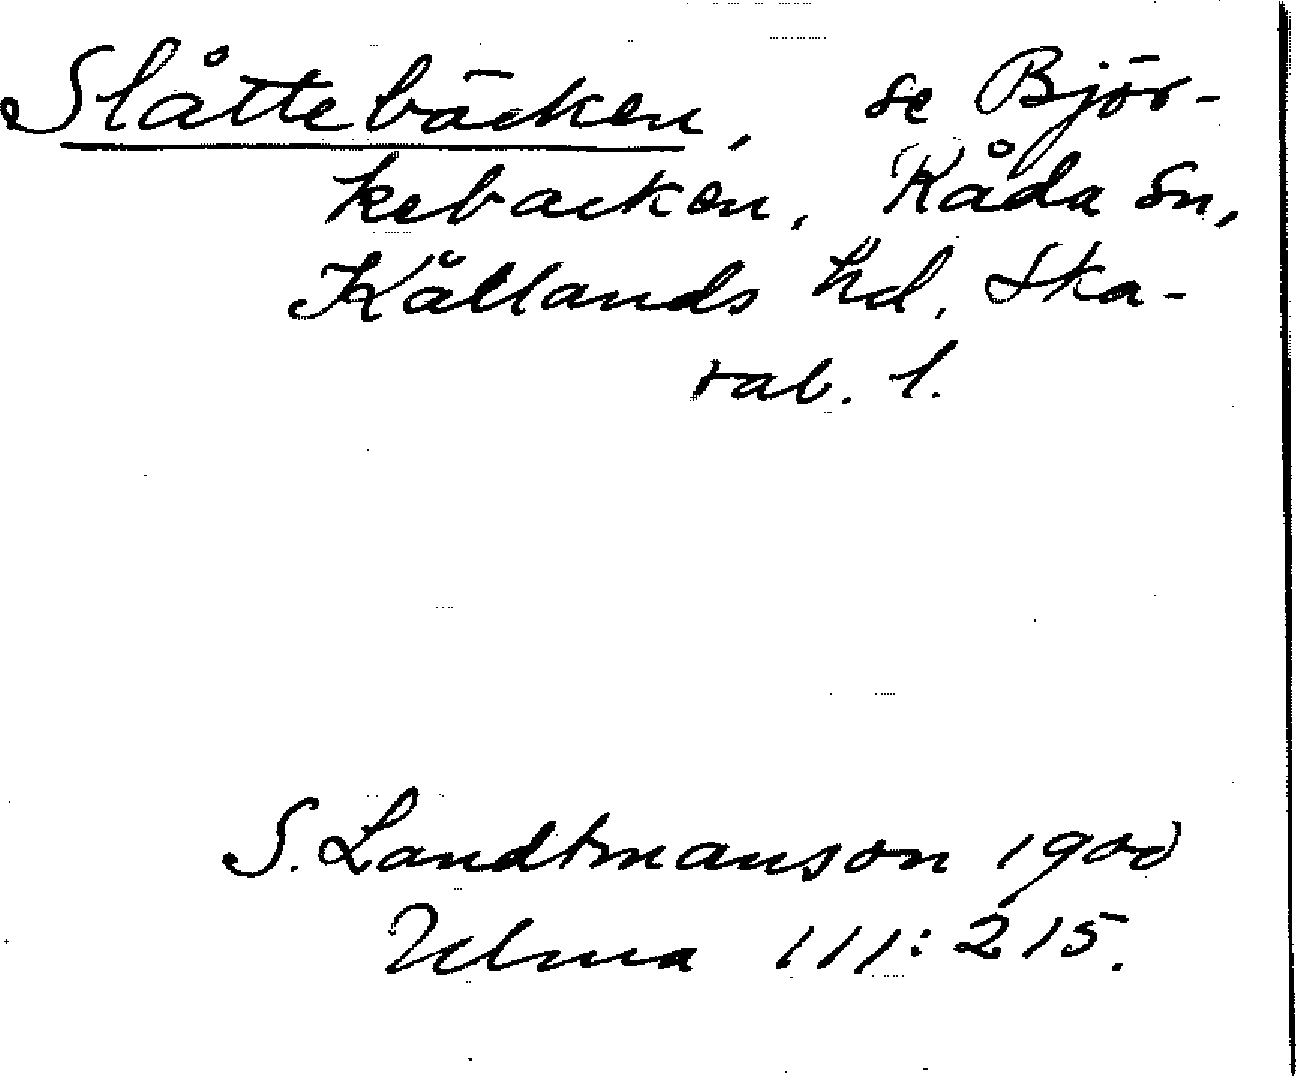 Slåttebäcken, se Björ-
kebacken, Råda sn,
Kållands hd, Ska-
rab. l.
S. Landtmanson 1900
Ulma 111:215.